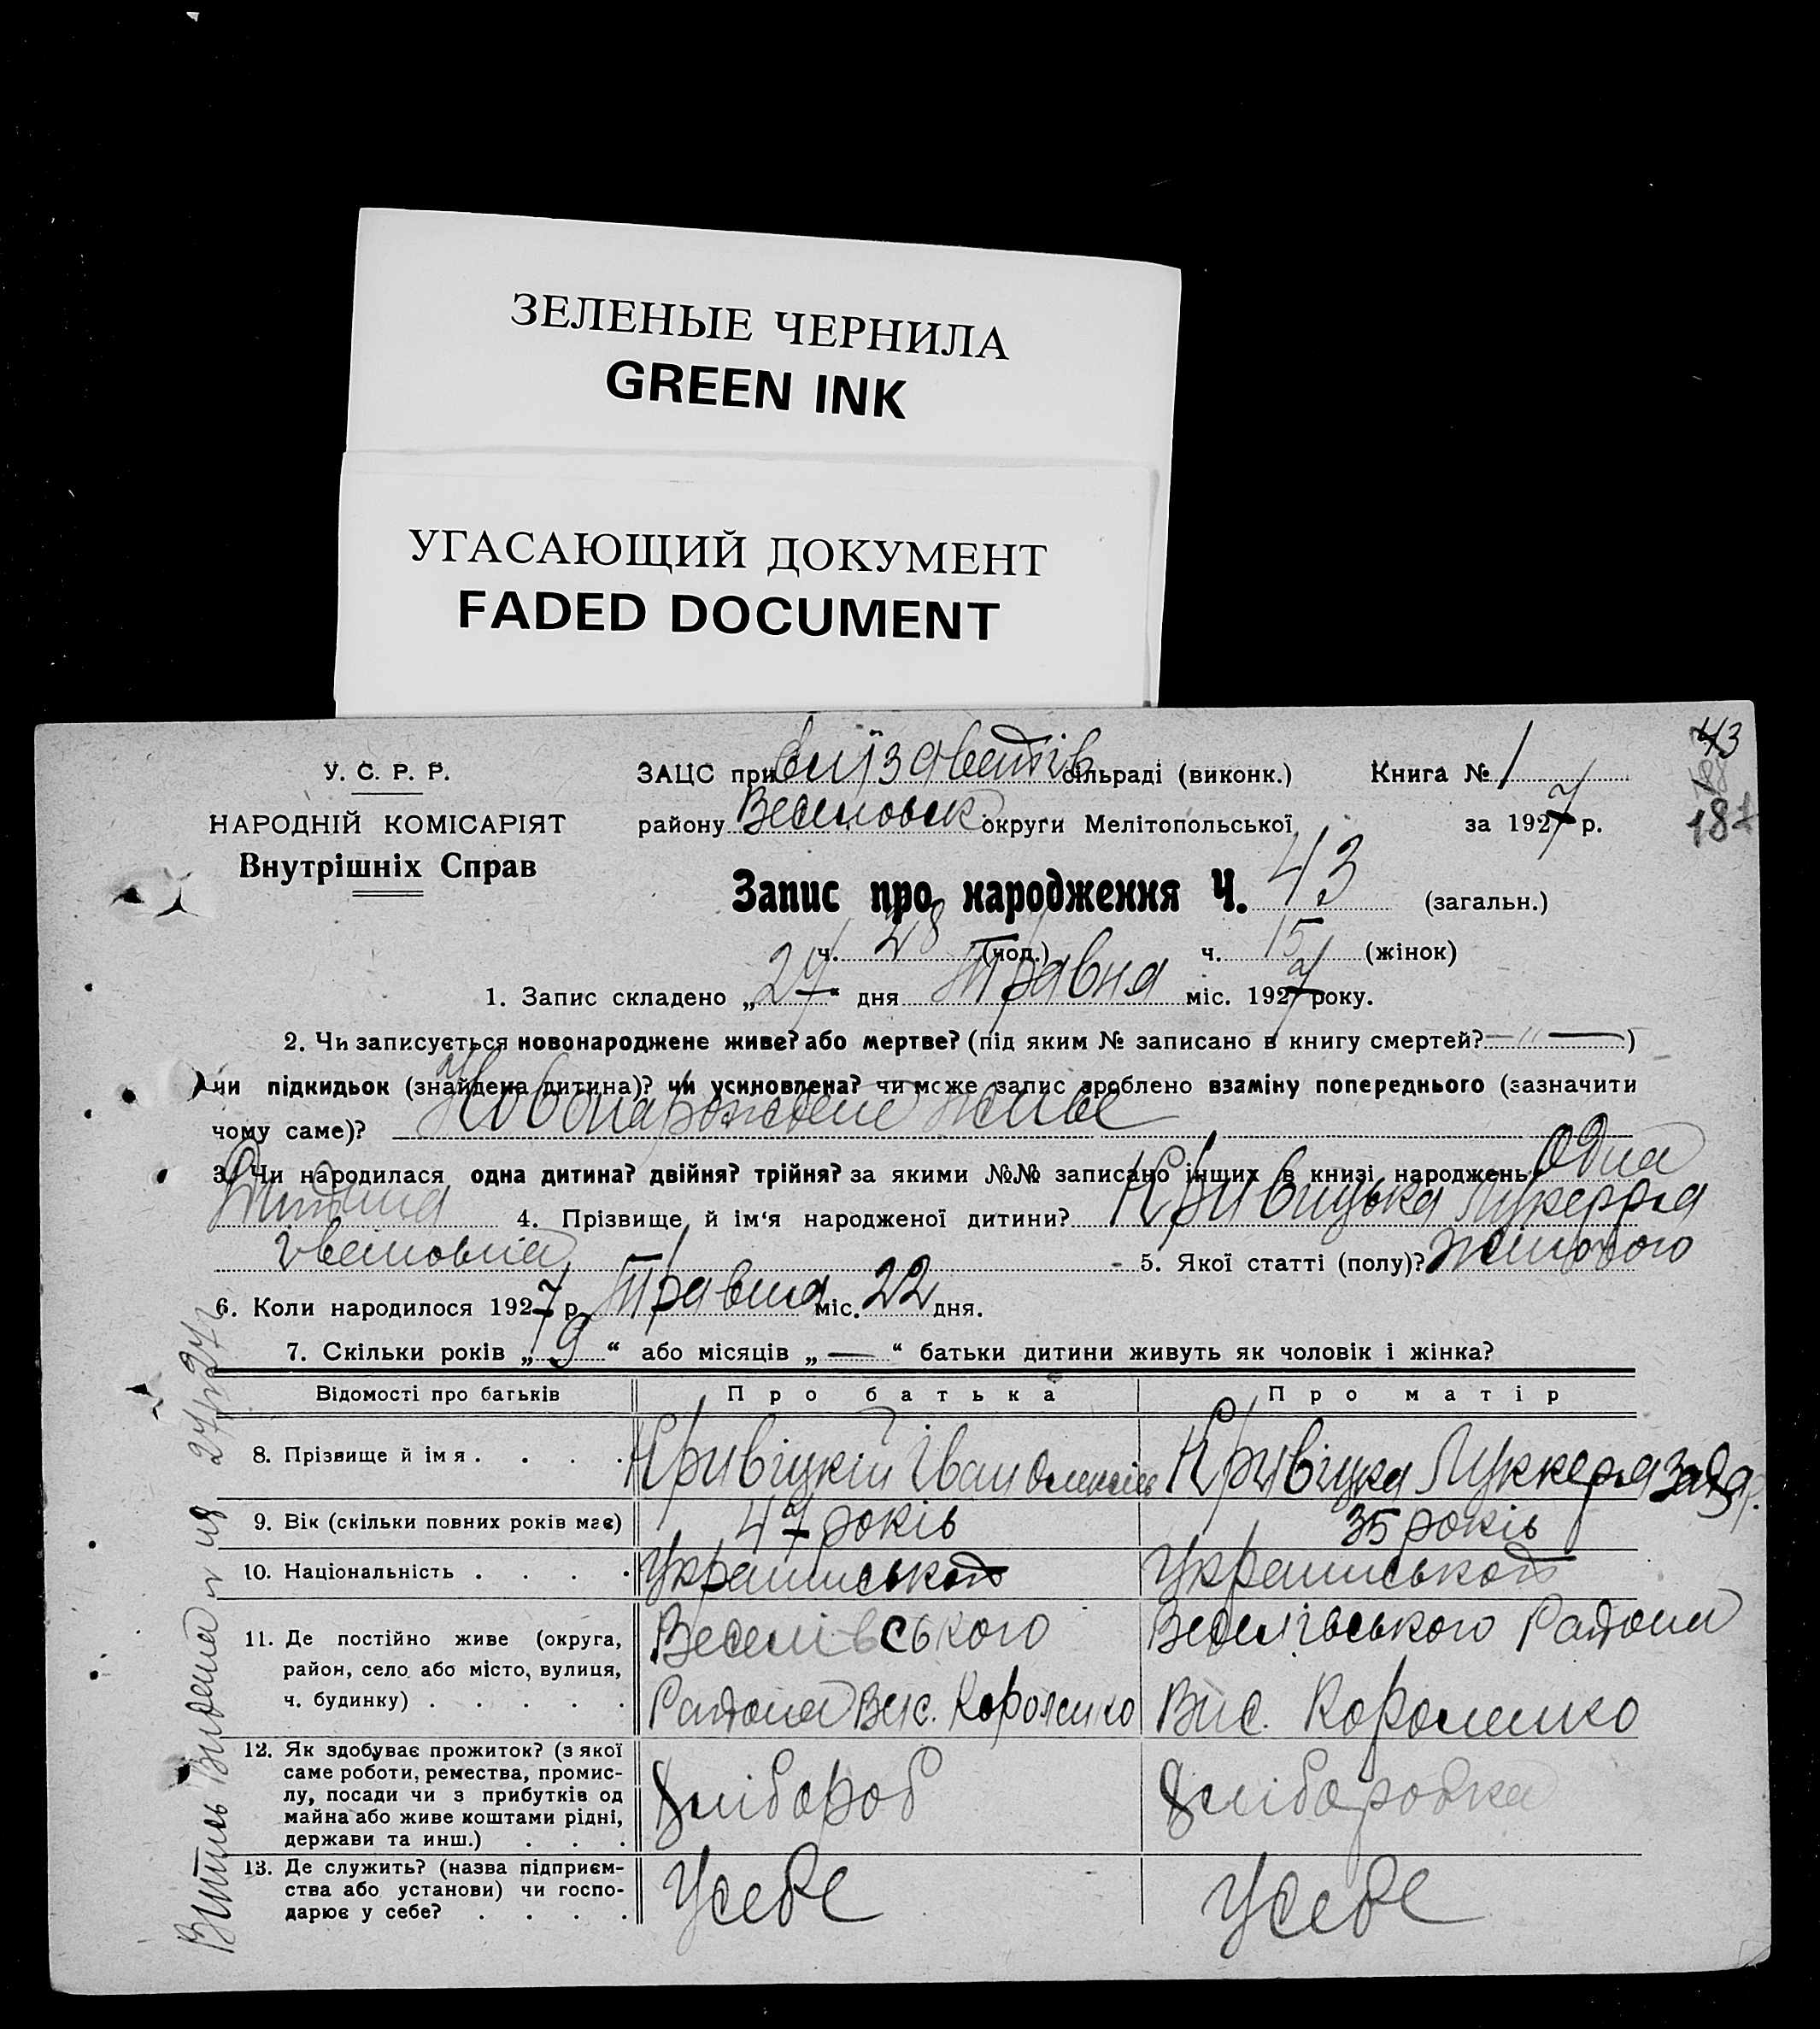 ЗЕЛЕНЫЕ ЧЕРНИЛА
GREEN INK
УГАСАЮЩИЙ ДОКУМЕНТ
FADED DOCUMENT
43
187
У. С. Р. Р.
НАРОДНІЙ КОМІСАРІЯТ
Внутрішніх Справ
ЗАЦС при сільраді (виконк.) Книга № 1
району Веселовск округи Мелітопольської за 1927 р.
Запис про народження Ч. 43 (загальн.)
ч. 28 (чол.) ч. 15 (жінок)
1. Запис складено „27“ дня Травня міс. 1927 року.
2. Чи записується новонароджене живе? або мертве? (під яким № записано в книгу смертей? — " —)
чи підкидьок (знайдена дитина)? чи усиновлена? чи може запис зроблено взаміну попереднього (зазначити
чому саме)? Новонарождене живе
3. Чи народилася одна дитина? двійня? трійня? за якими №№ записано інших в книзі народжень? Одна
Дитина 4. Прізвище й ім‘я народженої дитини? Кривицька Лукерря
Івановна 5. Якої статті (полу)? жіночого
6. Коли народилося 1927 р. Травня міс. 22 дня.
7. Скільки років „19“ або місяців „—“ батьки дитини живуть як чоловік і жінка?
Відомості про батьків Про батька Про матір
8. Прізвище й ім я . . . . Кривіцкій Іван Кривіцка Луккеря
9. Вік (скільки повних років має) 47 років 35 років
10. Національність . . . .
11. Де постійно живе (округа, район, село або місто, вулиця, ч. будинку) . . . . .
Веселівського
Района Вис. Короленко
Веселівського Района
Вис. Короленко
12. Як здобуває прожиток? (з якої
саме роботи, ремества, промис-
лу, посади чи з прибутків од
майна або живе коштами рідні,
держави та инш.) . . .
Хлібороб
Хліборобка
13. Де служить? (назва підприєм-
ства або установи) чи госпо-
дарює у себе? . . . .
У себе
У себе